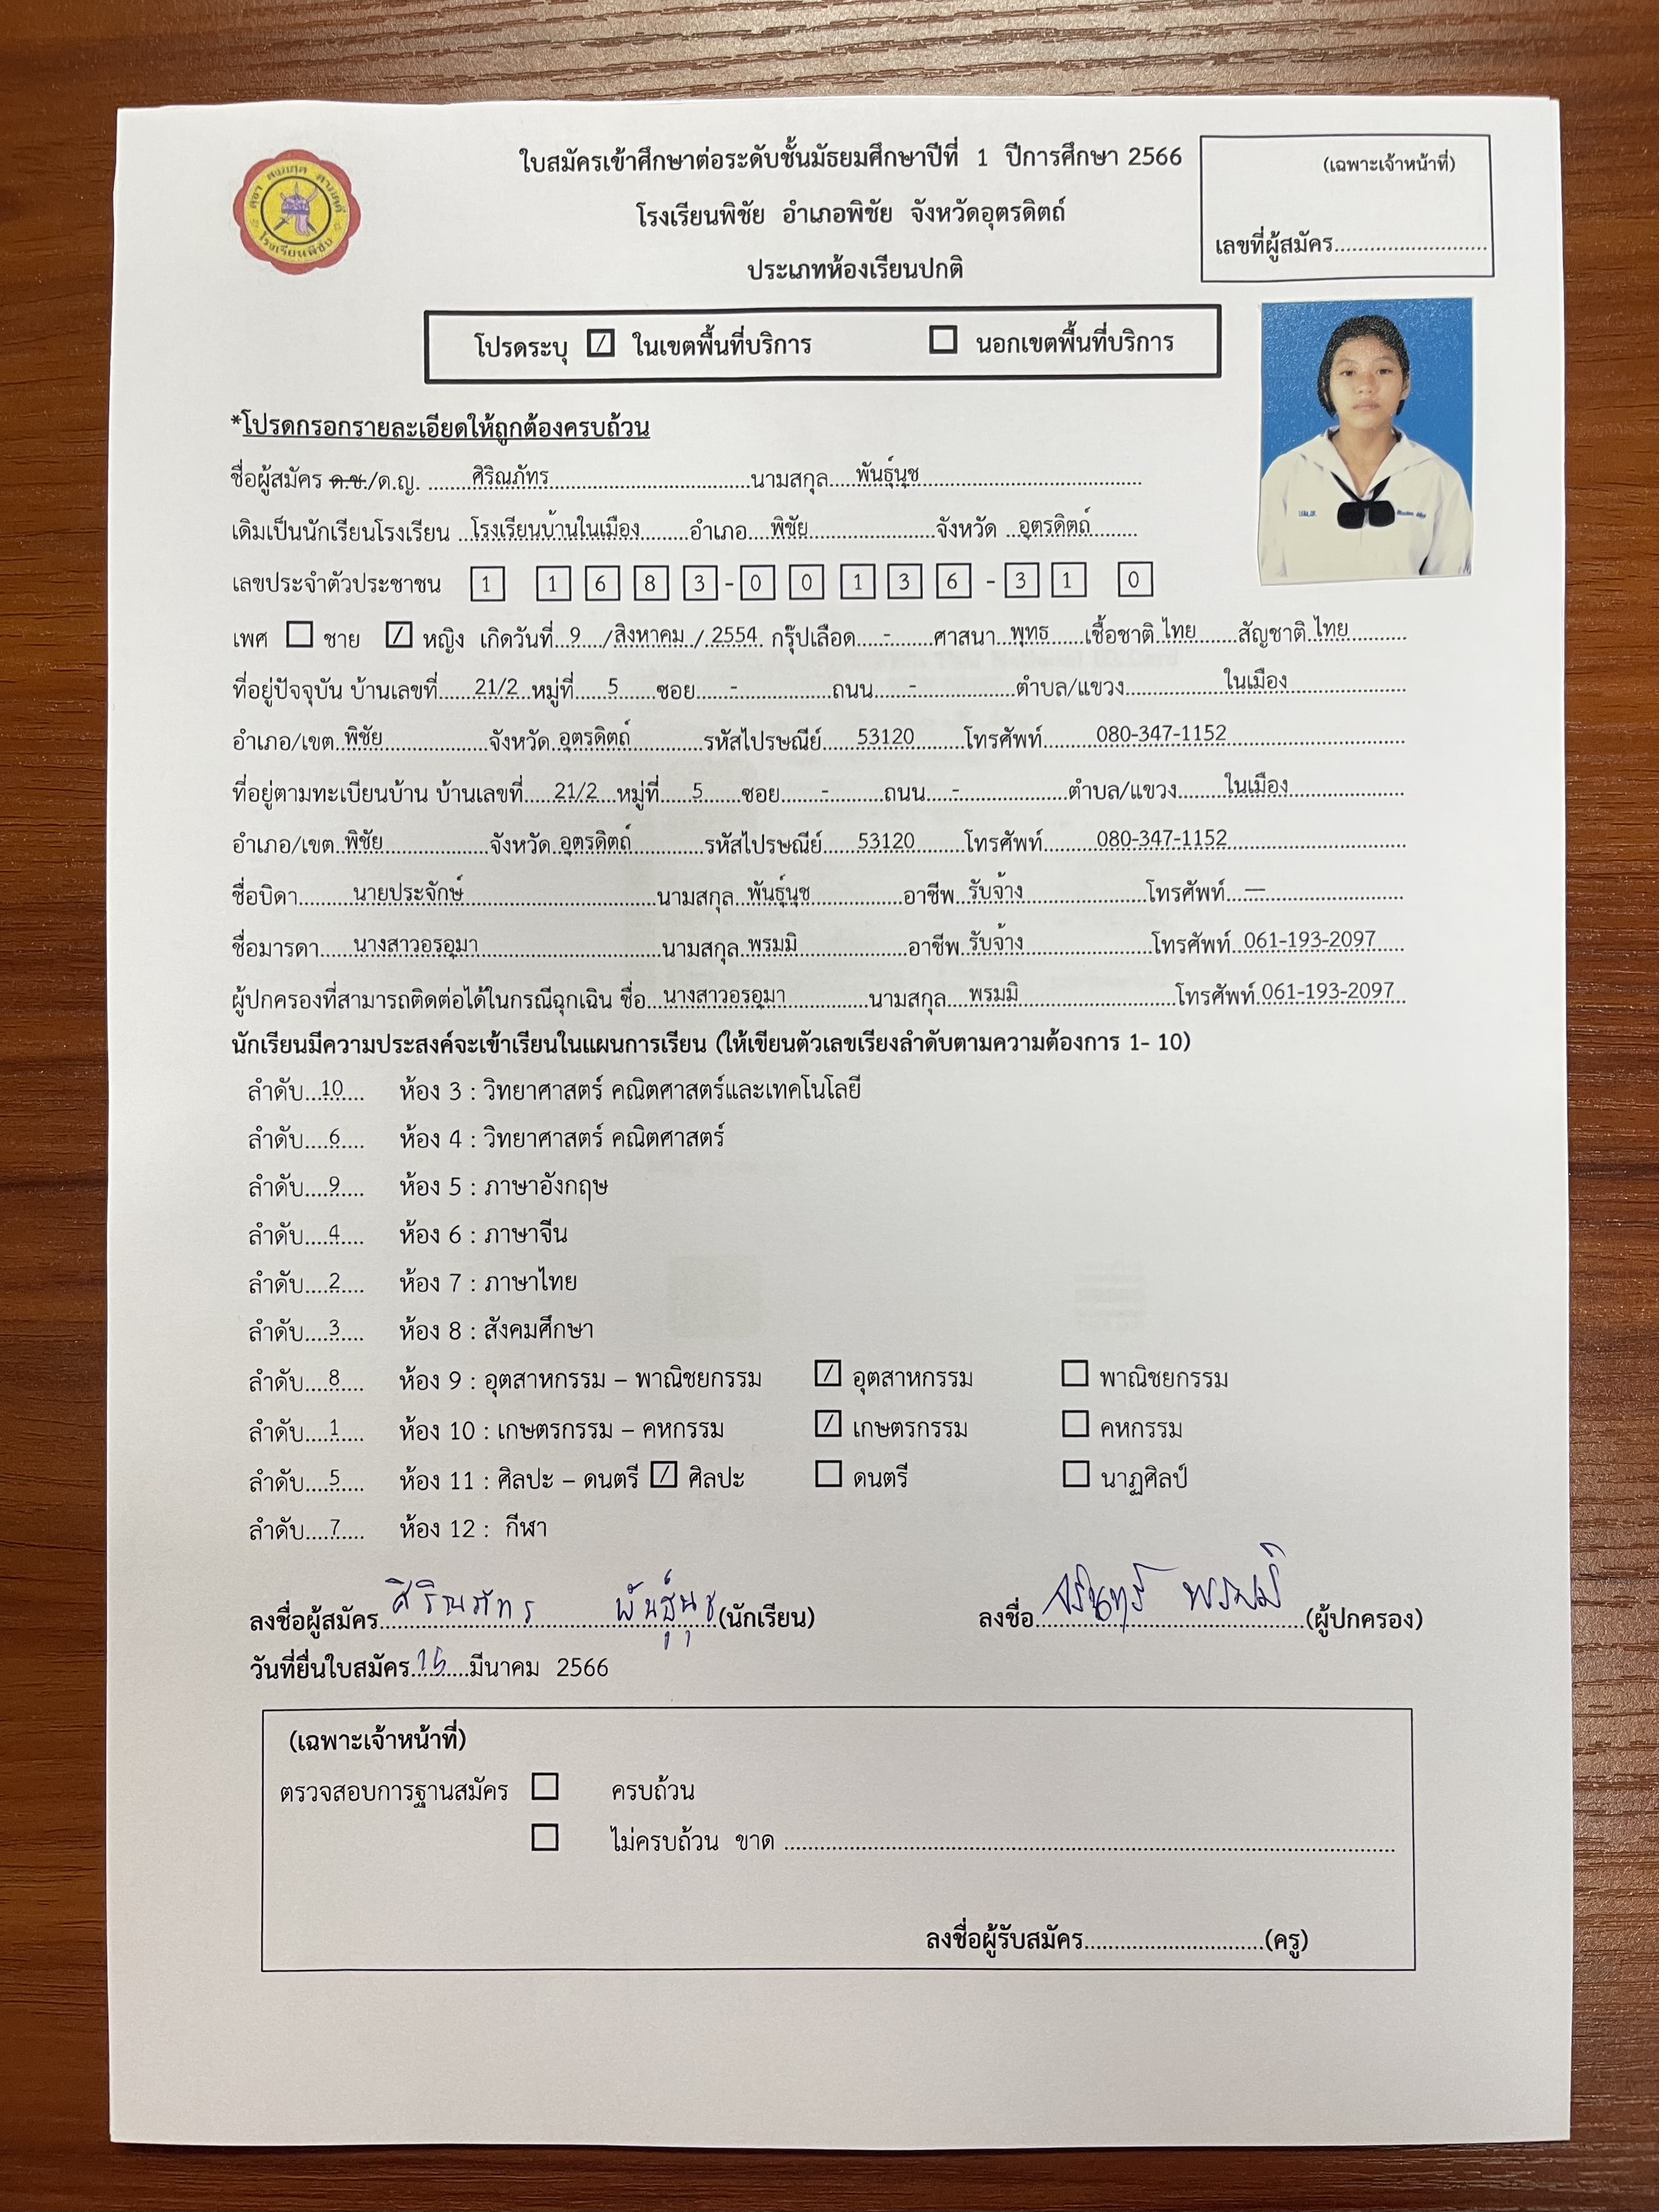 ใบสมัครเข้าศึกษาต่อระดับชั้นมัธยมศึกษาปีที่ 1 ปีการศึกษา 2566
(เฉพาะเจ้าหน้าที่)
โรงเรียนพิชัย อำเภอพิชัย จังหวัดอุตรดิตถ์
เลขที่ผู้สมัคร..........................
ประเภทห้องเรียนปกติ
โรงเรียนพิชัย
โปรดระบุ ☑ ในเขตพื้นที่บริการ ☐ นอกเขตพื้นที่บริการ
*โปรดกรอกรายละเอียดให้ถูกต้องครบถ้วน
ชื่อผู้สมัคร ด.ช./ด.ญ. ........ศิริณภัทร........นามสกุล....พันธุ์นุช........
เดิมเป็นนักเรียนโรงเรียน ..โรงเรียนบ้านในเมือง........อำเภอ....พิชัย........จังหวัด ..อุตรดิตถ์........
เลขประจำตัวประชาชน 1 1 6 8 3 - 0 0 1 3 6 - 3 1 0
เพศ ☐ ชาย ☑ หญิง เกิดวันที่..9.../สิงหาคม./..2554. กรุ๊ปเลือด....-......ศาสนา..พุทธ.....เชื้อชาติ.ไทย......สัญชาติ.ไทย........
ที่อยู่ปัจจุบัน บ้านเลขที่......21/2..หมู่ที่....5.....ซอย.....-........ถนน.....-........ตำบล/แขวง........ในเมือง........
อำเภอ/เขต..พิชัย........จังหวัด.อุตรดิตถ์........รหัสไปรษณีย์......53120........โทรศัพท์........080-347-1152........
ที่อยู่ตามทะเบียนบ้าน บ้านเลขที่.....21/2...หมู่ที่.....5.....ซอย......-........ถนน.....-........ตำบล/แขวง........ในเมือง........
อำเภอ/เขต..พิชัย........จังหวัด.อุตรดิตถ์........รหัสไปรษณีย์......53120........โทรศัพท์........080-347-1152........
ชื่อบิดา........นายประจักษ์........นามสกุล..พันธุ์นุช........อาชีพ..รับจ้าง........โทรศัพท์...—........
ชื่อมารดา.....นางสาวอรอุมา........นามสกุล.พรมมิ........อาชีพ.รับจ้าง........โทรศัพท์..061-193-2097.....
ผู้ปกครองที่สามารถติดต่อได้ในกรณีฉุกเฉิน ชื่อ...นางสาวอรอุมา........นามสกุล....พรมมิ........โทรศัพท์.061-193-2097..
นักเรียนมีความประสงค์จะเข้าเรียนในแผนการเรียน (ให้เขียนตัวเลขเรียงลำดับตามความต้องการ 1- 10)
ลำดับ...10..... ห้อง 3 : วิทยาศาสตร์ คณิตศาสตร์และเทคโนโลยี
ลำดับ....6..... ห้อง 4 : วิทยาศาสตร์ คณิตศาสตร์
ลำดับ....9..... ห้อง 5 : ภาษาอังกฤษ
ลำดับ....4..... ห้อง 6 : ภาษาจีน
ลำดับ....2..... ห้อง 7 : ภาษาไทย
ลำดับ....3..... ห้อง 8 : สังคมศึกษา
ลำดับ....8..... ห้อง 9 : อุตสาหกรรม – พาณิชยกรรม ☑ อุตสาหกรรม ☐ พาณิชยกรรม
ลำดับ....1..... ห้อง 10 : เกษตรกรรม – คหกรรม ☑ เกษตรกรรม ☐ คหกรรม
ลำดับ....5..... ห้อง 11 : ศิลปะ – ดนตรี ☑ ศิลปะ ☐ ดนตรี ☐ นาฏศิลป์
ลำดับ....7..... ห้อง 12 : กีฬา
ลงชื่อผู้สมัคร..ศิริณภัทร พันธุ์นุช(นักเรียน) ลงชื่อ........พรมมิ........(ผู้ปกครอง)
วันที่ยื่นใบสมัคร..........มีนาคม 2566
(เฉพาะเจ้าหน้าที่)
ตรวจสอบการฐานสมัคร ☐ ครบถ้วน
☐ ไม่ครบถ้วน ขาด ........................................................
ลงชื่อผู้รับสมัคร..............................(ครู)